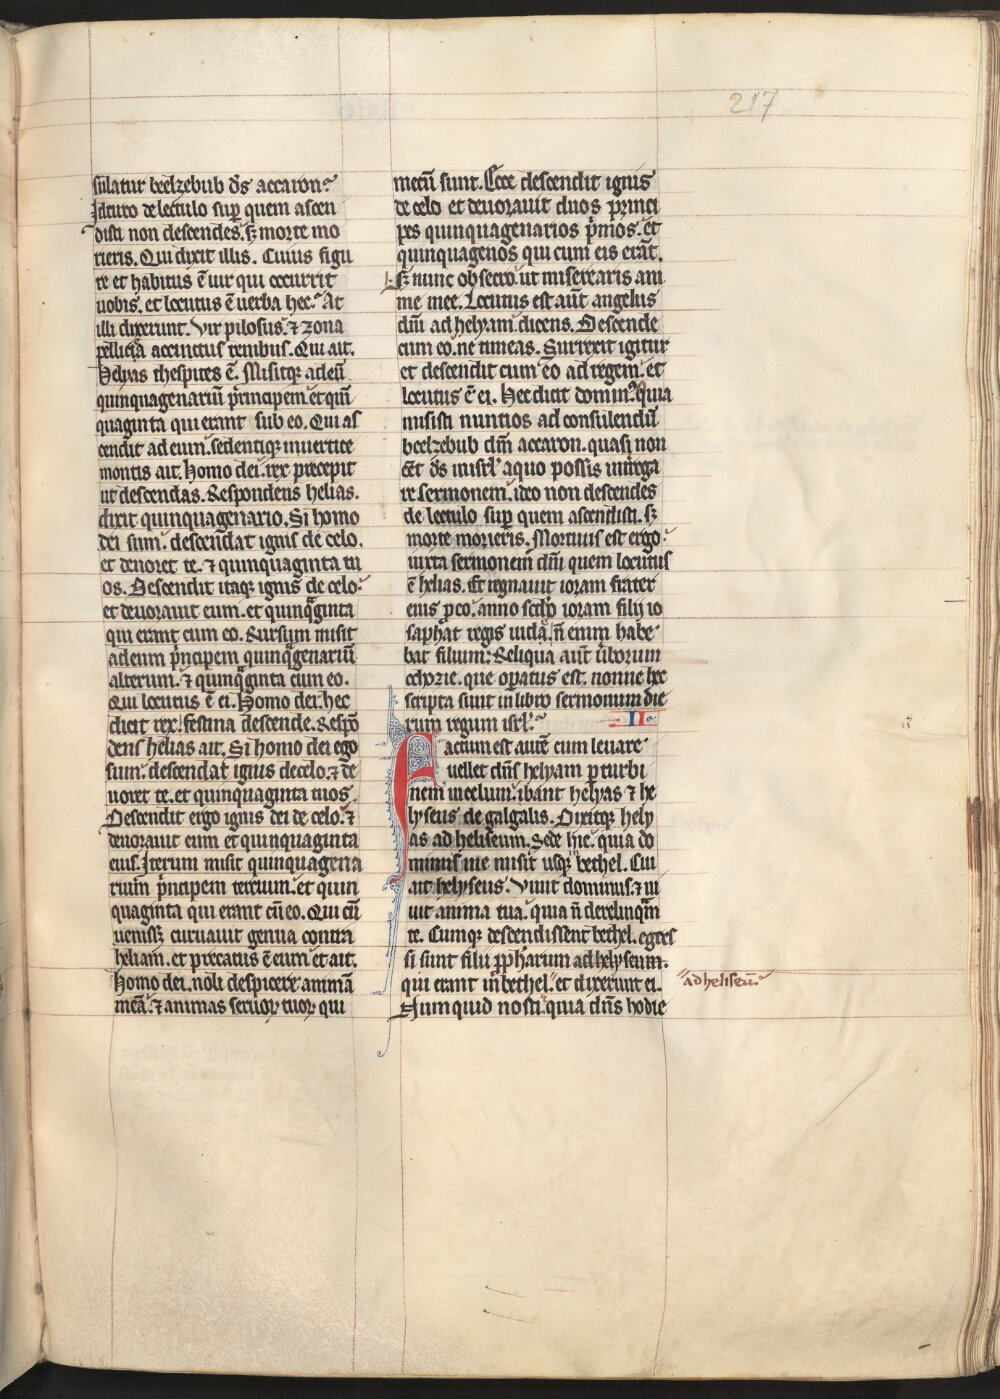 217
sulatur beelzebub d̄s accaron.
Idcirco de lectulo sup̲ quem ascen
disti non descendes. s̄ morte mo
rieris. Qui dixit illis. Cuius figu
re et habitus ē uir qui occurrit
uobis. et locutus ē uerba hec. At
illi dixerunt. Vir pilosus. ⁊ zona
pellicia accinctus renibus. Qui ait.
Helyas thespites ē. Misitqꝫ ad eū
quinquagenariū principem et quī
quaginta qui erant sub eo. Qui as
cendit ad eum. sedentiqꝫ in uertice
montis ait. Homo dei. rex precepit
ut descendas. Respondens helias.
dixit quinquagenario. Si homo
dei sum. descendat ignis de celo.
et deuoret te. ⁊ quinquaginta tu
os. Descendit itaqꝫ ignis de celo.
et deuorauit eum. et quinqᵃginta
qui erant cum eo. Rursum misit
ad eum pͥncipem quinqᵃgenariū
alterum. ⁊ quinqᵃginta cum eo.
Qui locutus ē ei. Homo dei. hec
dicit rex. festina descende. Respō
dens helias ait. Si homo dei ego
sum. descendat ignis de celo. ⁊ de
uoret te. et quinquaginta tuos.
Descendit ergo ignis dei de celo. ⁊
deuorauit eum et quinquaginta
eius. Iterum misit quinquagena
rium pͥncipem tercium. et quin
quaginta qui erant cū eo. Qui cū
uenissꝫ curuauit genua contra
heliam. et precatus ē eum et ait.
Homo dei. noli despicere animā
meā. ⁊ animas seruoꝝ tuoꝝ qui
mecū sunt. Ecce descendit ignis
de celo et deuorauit duos princi
pes quinquagenarios pͥmos. et
quinquagenos qui cum eis erāt.
s̄ nunc obsecro. ut miserearis ani
me mee. Locutus est aūt angelus
dn̄i ad helyam dicens. Descende
cum eo. ne timeas. Surrexit igitur
et descendit cum eo ad regem. et
locutus ē ei. Hec dicit dominꝰ. Quia
misisti nuntios ad consulendū
beelzebub dm̄ accaron. quasi non
eēt d̄s in isrl̄ a quo possis interͦga
re sermonem. ideo non descendes
de lectulo sup̲ quem ascendisti. s̄
morte morieris. Mortuus est ergo
iuxta sermonem dn̄i quem locutus
ē helias. Et regnauit ioram frater
eius p̲ eo. anno scd̄o ioram filij io
saphat regis iuda. n̄ enim habe
bat filium. Reliqua aūt uerborum
ochozie. que op̲atus est. nonne hec
scripta sunt in libro sermonum die
rum regum isrl̄. II
Factum est autē cum leuare
uellet dn̄s helyam p̲ turbi
nem in celum. ibant helyas ⁊ he
lyseus de galgalis. Dixitqꝫ hely
as ad heliseum. Sede hic. quia do
minus me misit usqꝫ bethel. Cui
ait helyseus. Viuit dominus. ⁊ ui
uit anima tua. quia n̄ derelinqᵃm
te. Cumqꝫ descendissent bethel. egres
si sunt filii ꝓphetarum ad helyseum.
qui erant in bethel. et dixerunt ei.
ad heliseū.
Numquid nosti. quia dn̄s hodie